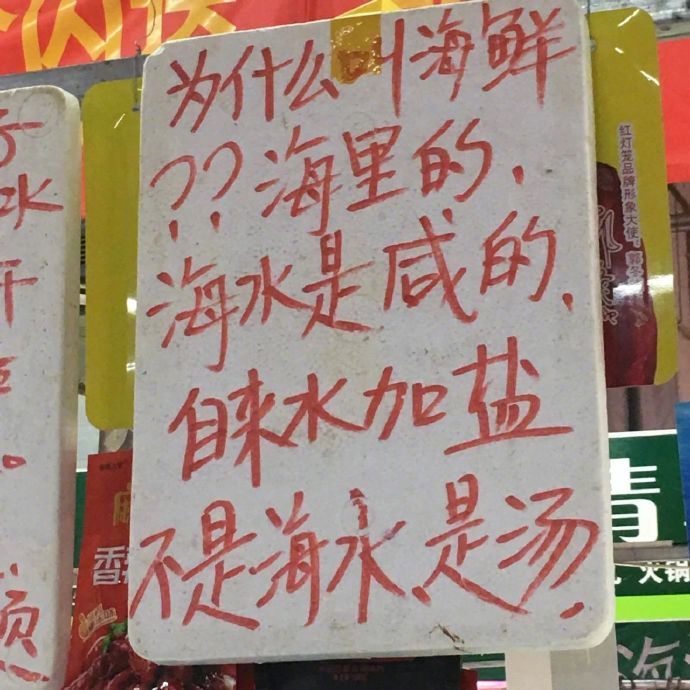 为什么叫海鲜
??海里的,
海水是咸的,
自来水加盐
不是海水,是汤.
红灯笼品牌形象大使:郭冬
青
火锅
海
香
水